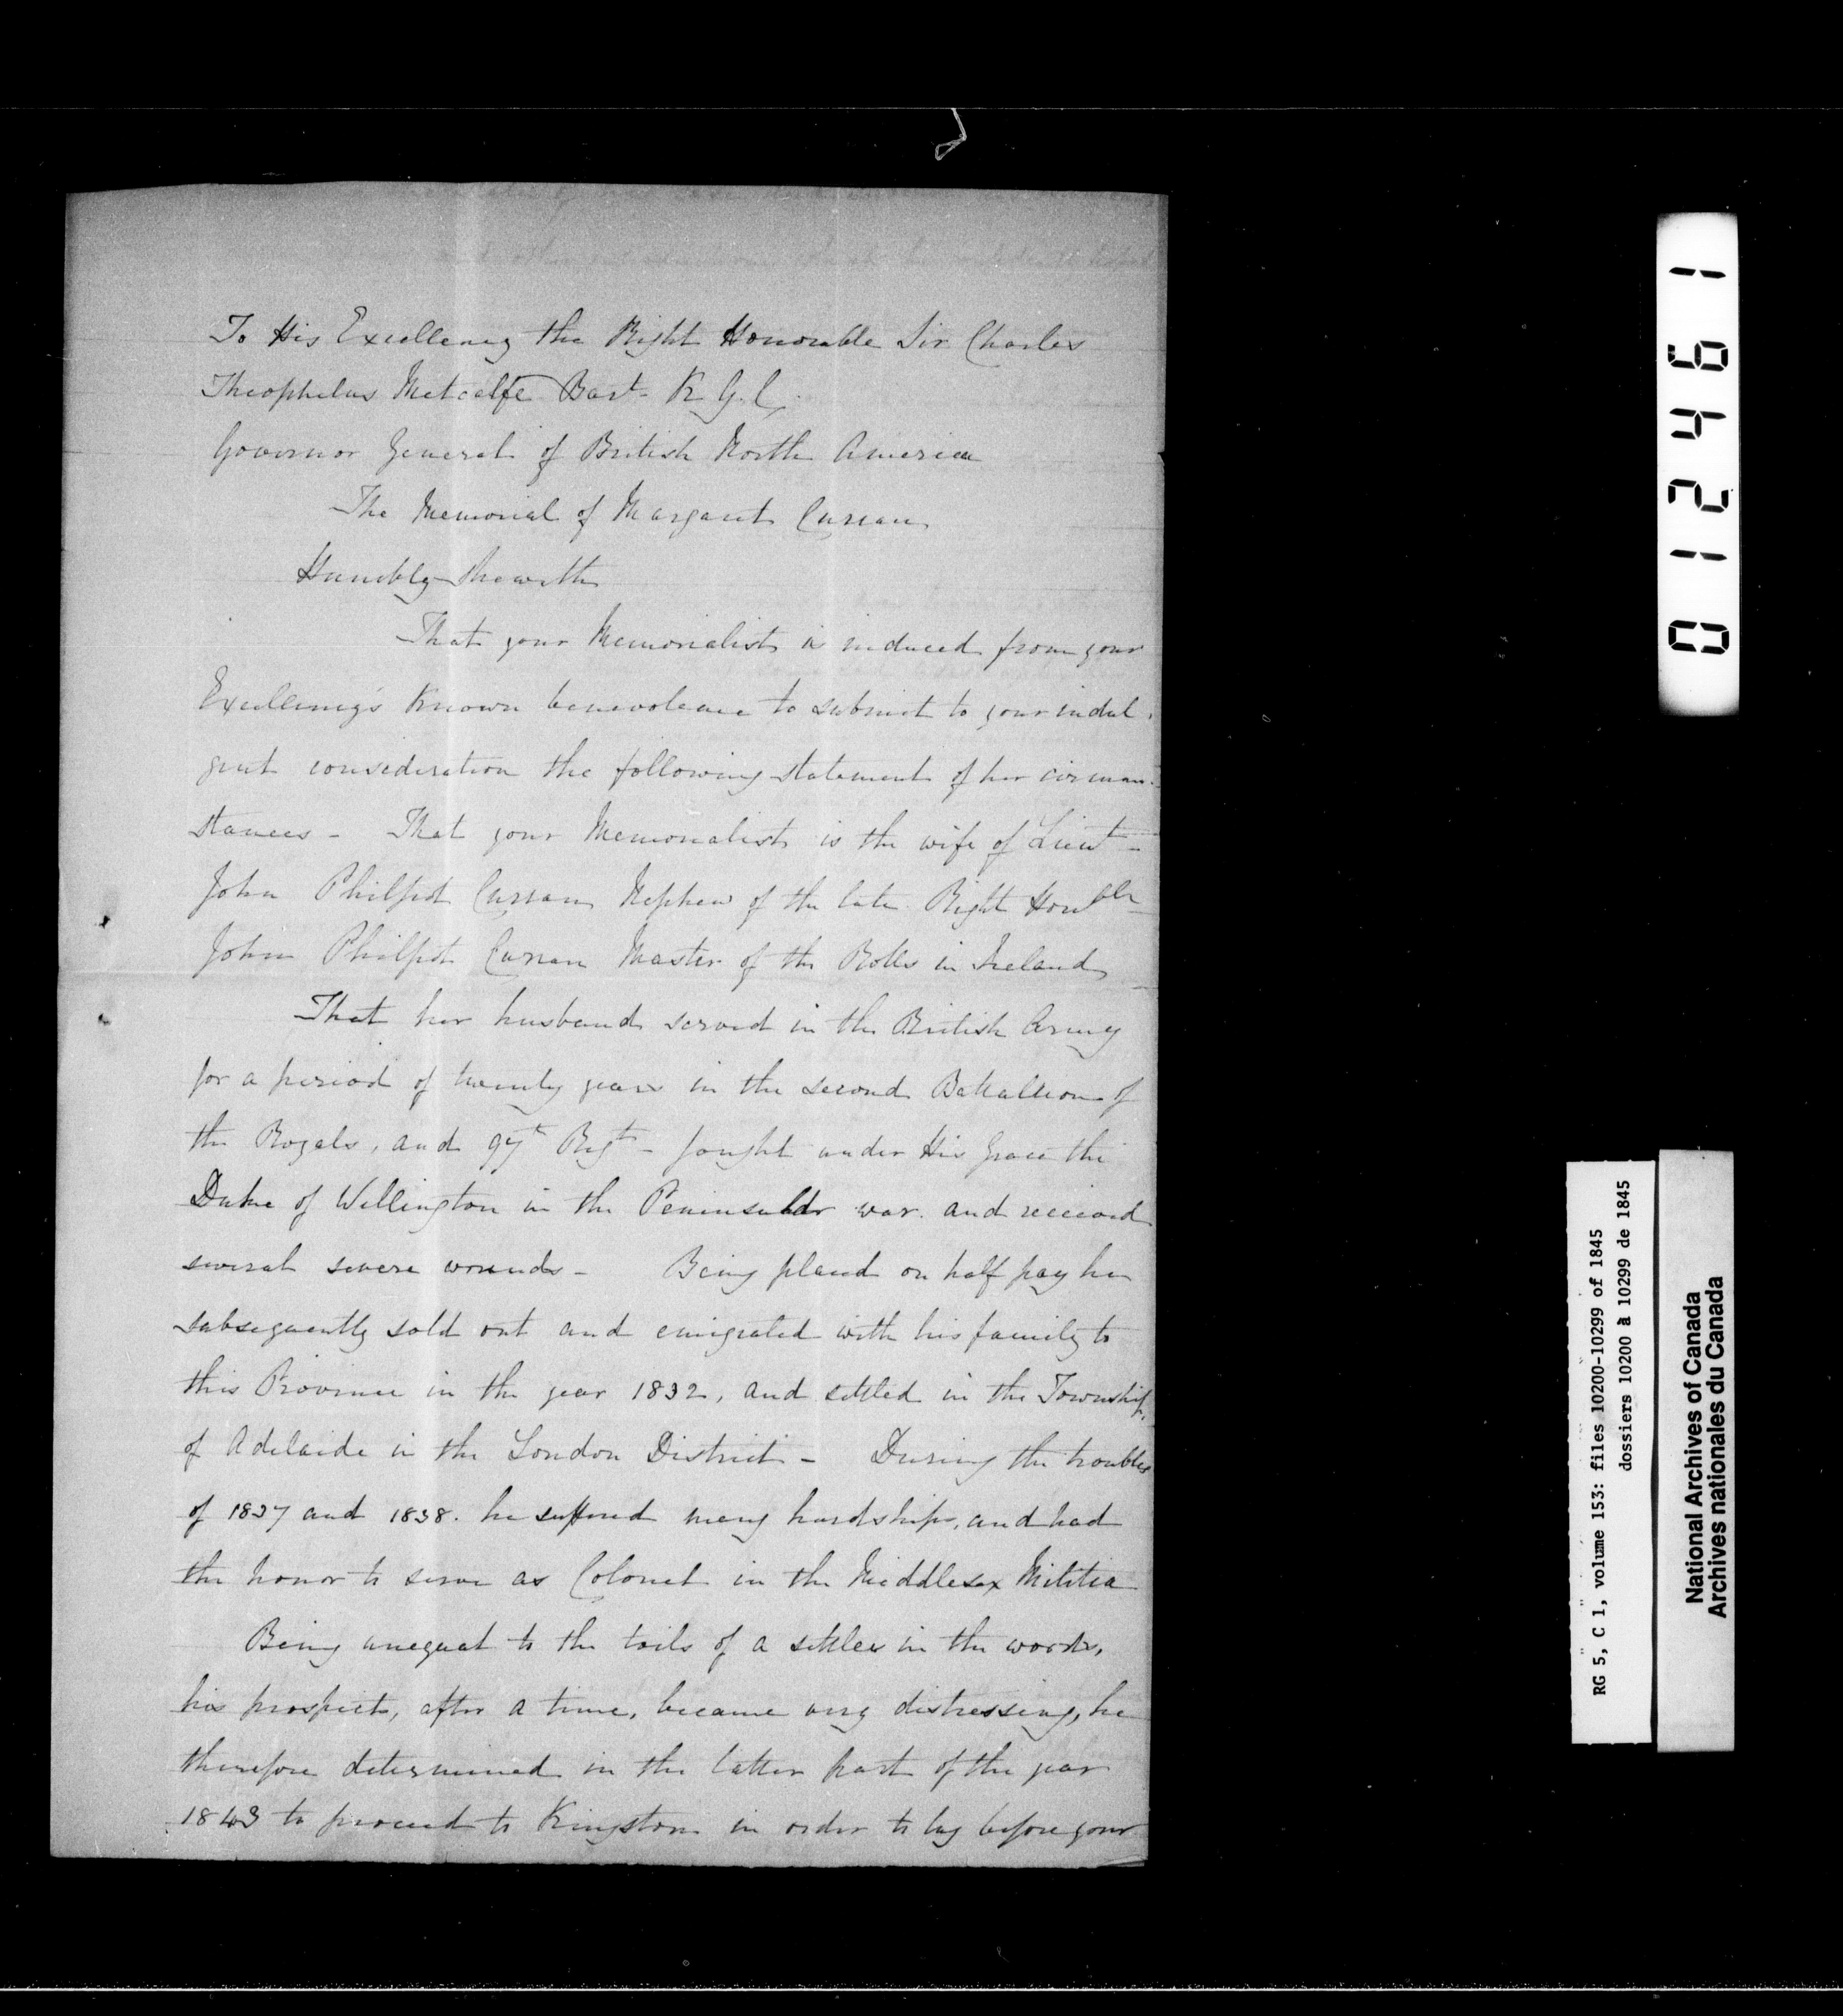 To His Excellency the Right Honorable Sir Charles
Theophelus Metcalfe Bart K G. C.
Governor General of British North America
The Memorial of Margaret Curran
Humbly Sheweth
That your Memorialist is induced from your
Excellency's known benevolence to submit to your indul
gent consideration the following statement of her circum
stances - That your Memorialist is the wife of Lieut -
John Philpot Curran Nephew of the late Right Honble
John Philpot Curran Master of the Rolls in Ireland
That her husband served in the British Army
for a period of twenty years in the second Battalion of
the Royals, and 97th Regt - fought under His Grace the
Duke of Wellington in the Peninsular war. and received
several severe wounds - Being placed on half pay he
subsequently sold out and emigrated with his family to
this Province in the year 1832, and settled in the Township
of Adelaide in the London District - During the troubles
of 1837 and 1838. he suffered many hardships, and had
the honor to serve as Colonel in the Middlesex Militia
Being unequal to the toils of a settler in the woods,
his prospects, after a time, became very distressing, he
therefore determined in the latter part of the year
1843 to proceed to Kingston in order to lay before your
012461
RG 5, C 1, volume 153: files 10200-10299 of 1845
dossiers 10200 à 10299 de 1845
National Archives of Canada
Archives nationales du Canada